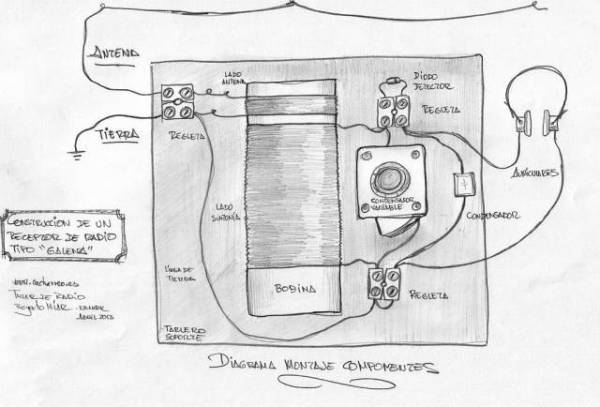 ANTENA
TIERRA
REGLETA
LADO
ANTENA
DIODO
DETECTOR
REGLETA
AURICULARES
CONDENSADOR
VARIABLE
CONDENSADOR
LADO
SINTONÍA
LÍNEA DE
TIERRA
BOBINA
REGLETA
TABLERO
SOPORTE
CONSTRUCCION DE UN
RECEPTOR DE RADIO
TIPO "GALENA"
TALLER DE RADIO
ABRIL 2013
DIAGRAMA MONTAJE COMPONENTES